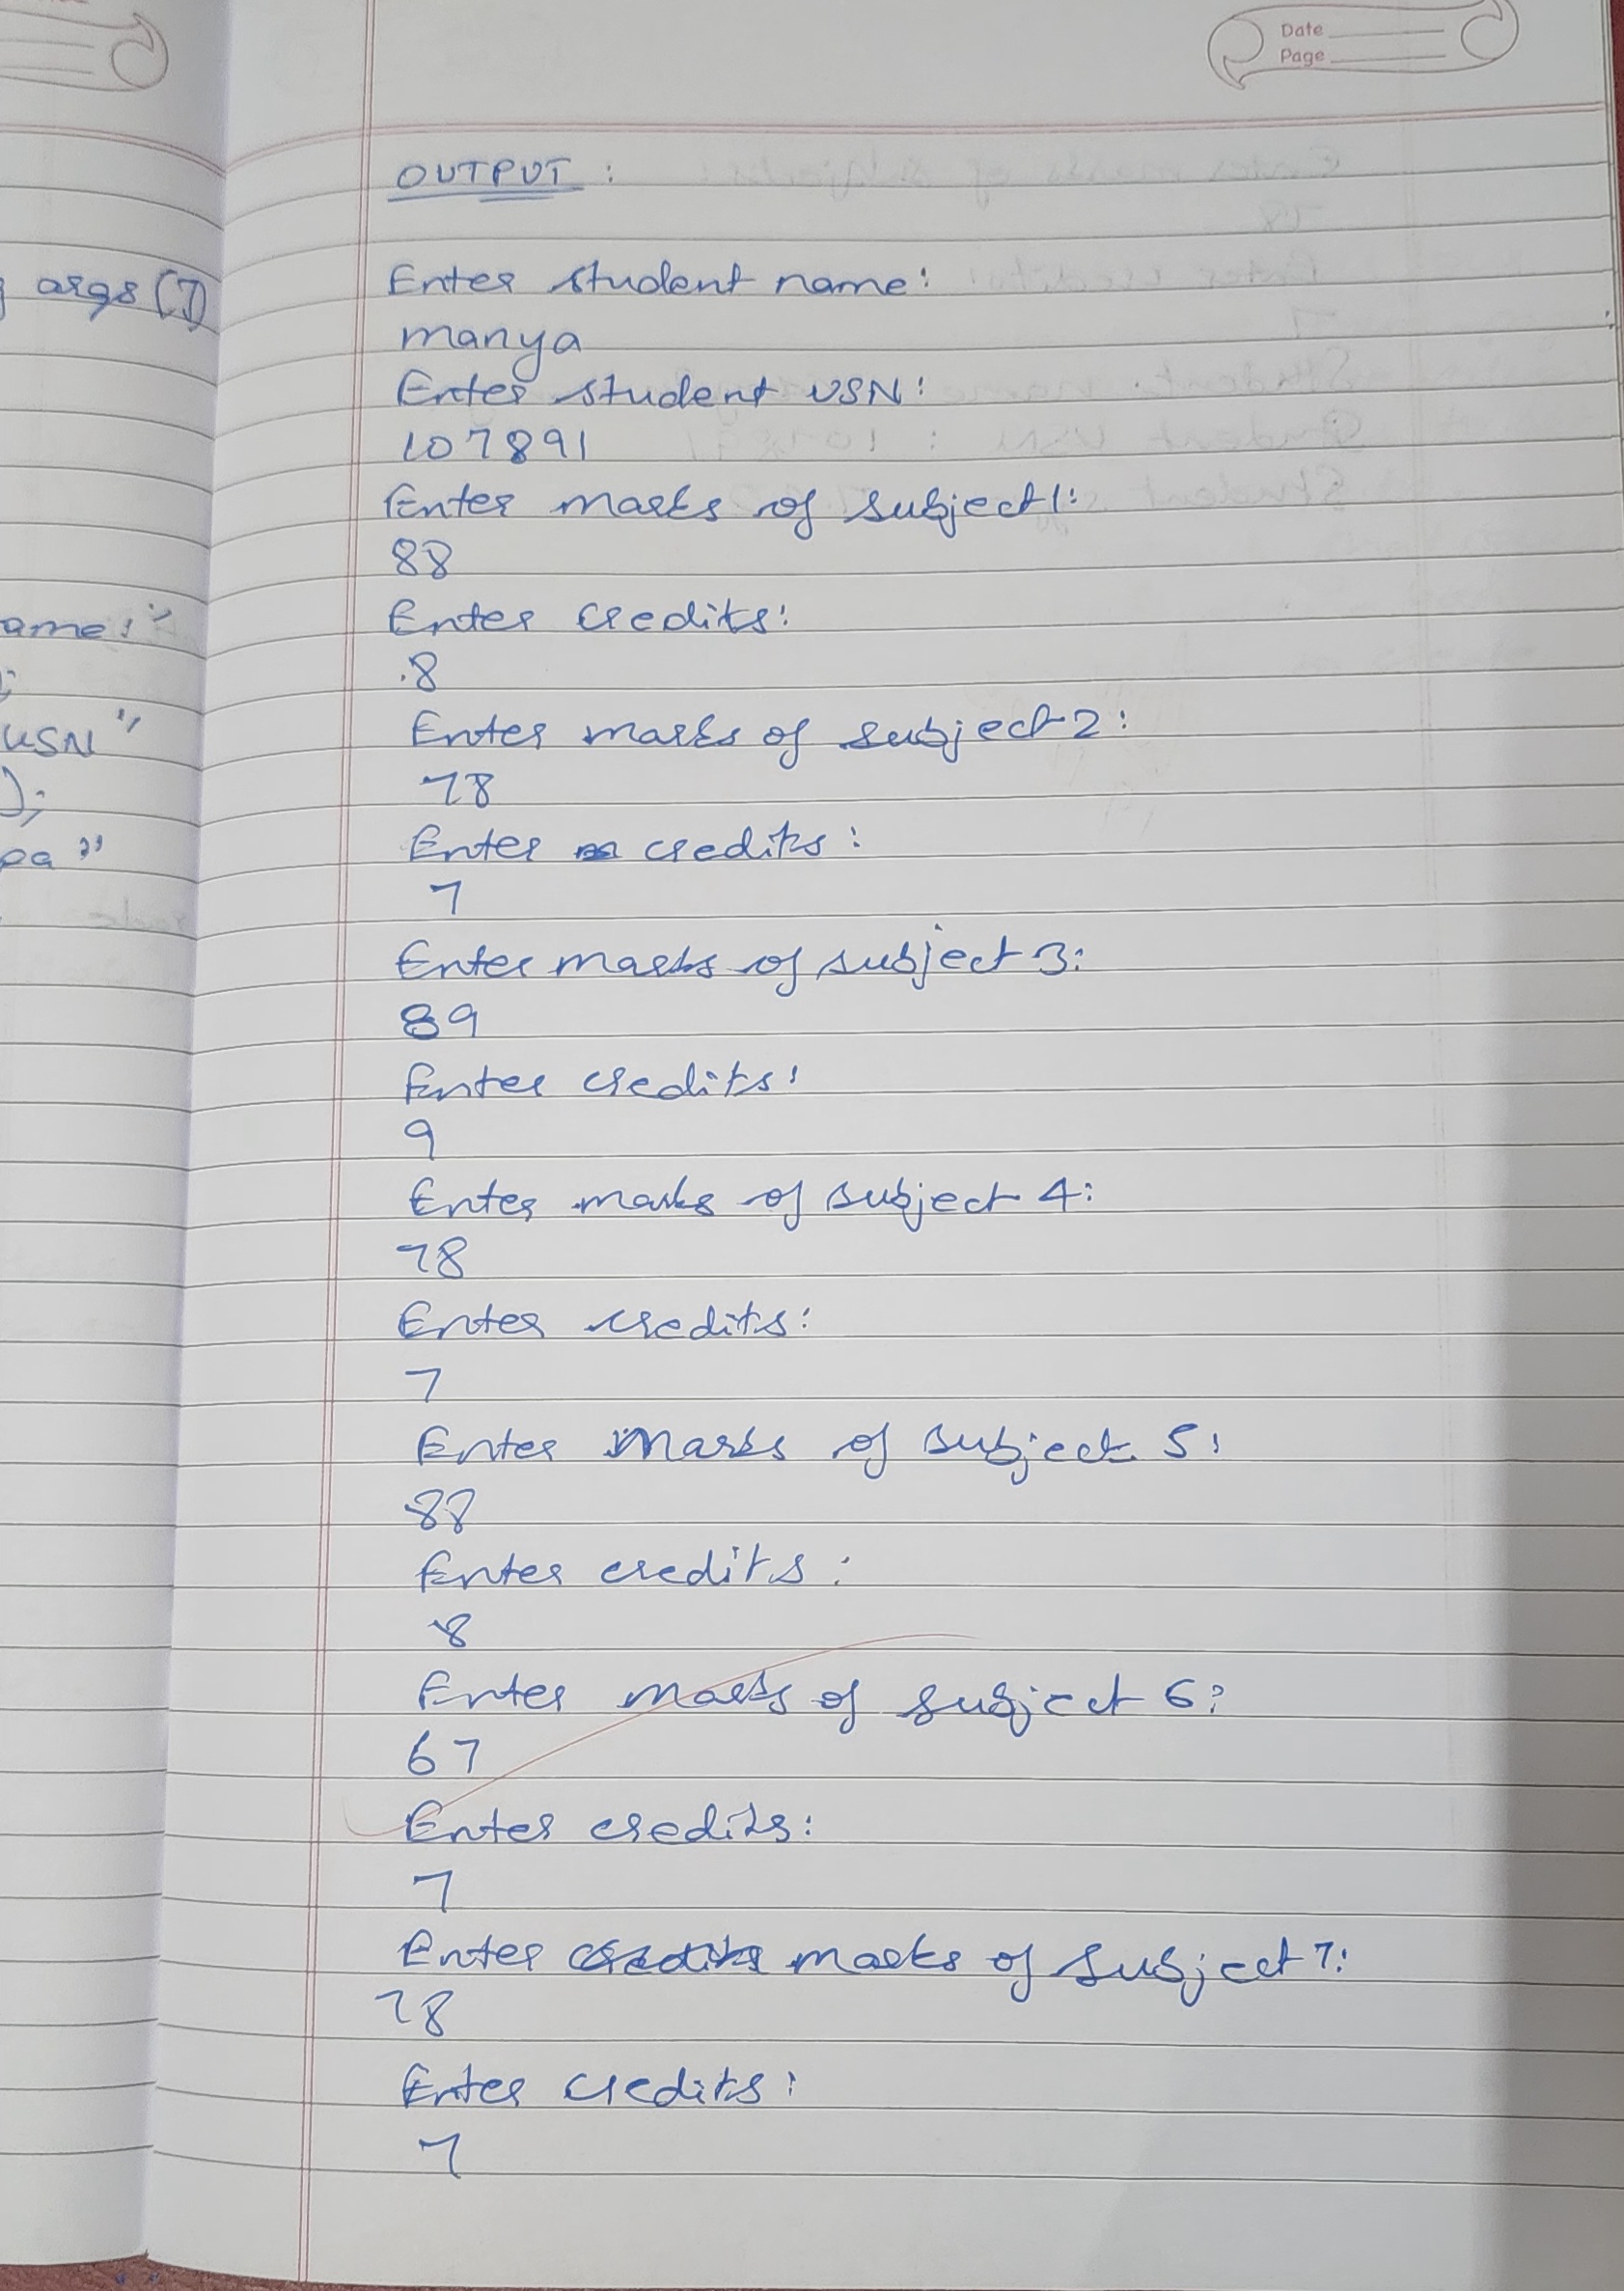 Date
Page
args []
ame:"
;
USN"
);
pa"
OUTPUT :
Enter student name:
manya
Enter student USN:
107891
Enter marks of subject 1:
88
Enter credits:
8
Enter marks of subject 2:
78
Enter credits:
7
Enter marks of subject 3:
89
Enter credits:
9
Enter marks of subject 4:
78
Enter credits:
7
Enter marks of subject 5:
88
Enter credits:
8
Enter marks of subject 6:
67
Enter credits:
7
Enter marks of subject 7:
78
Enter credits:
7